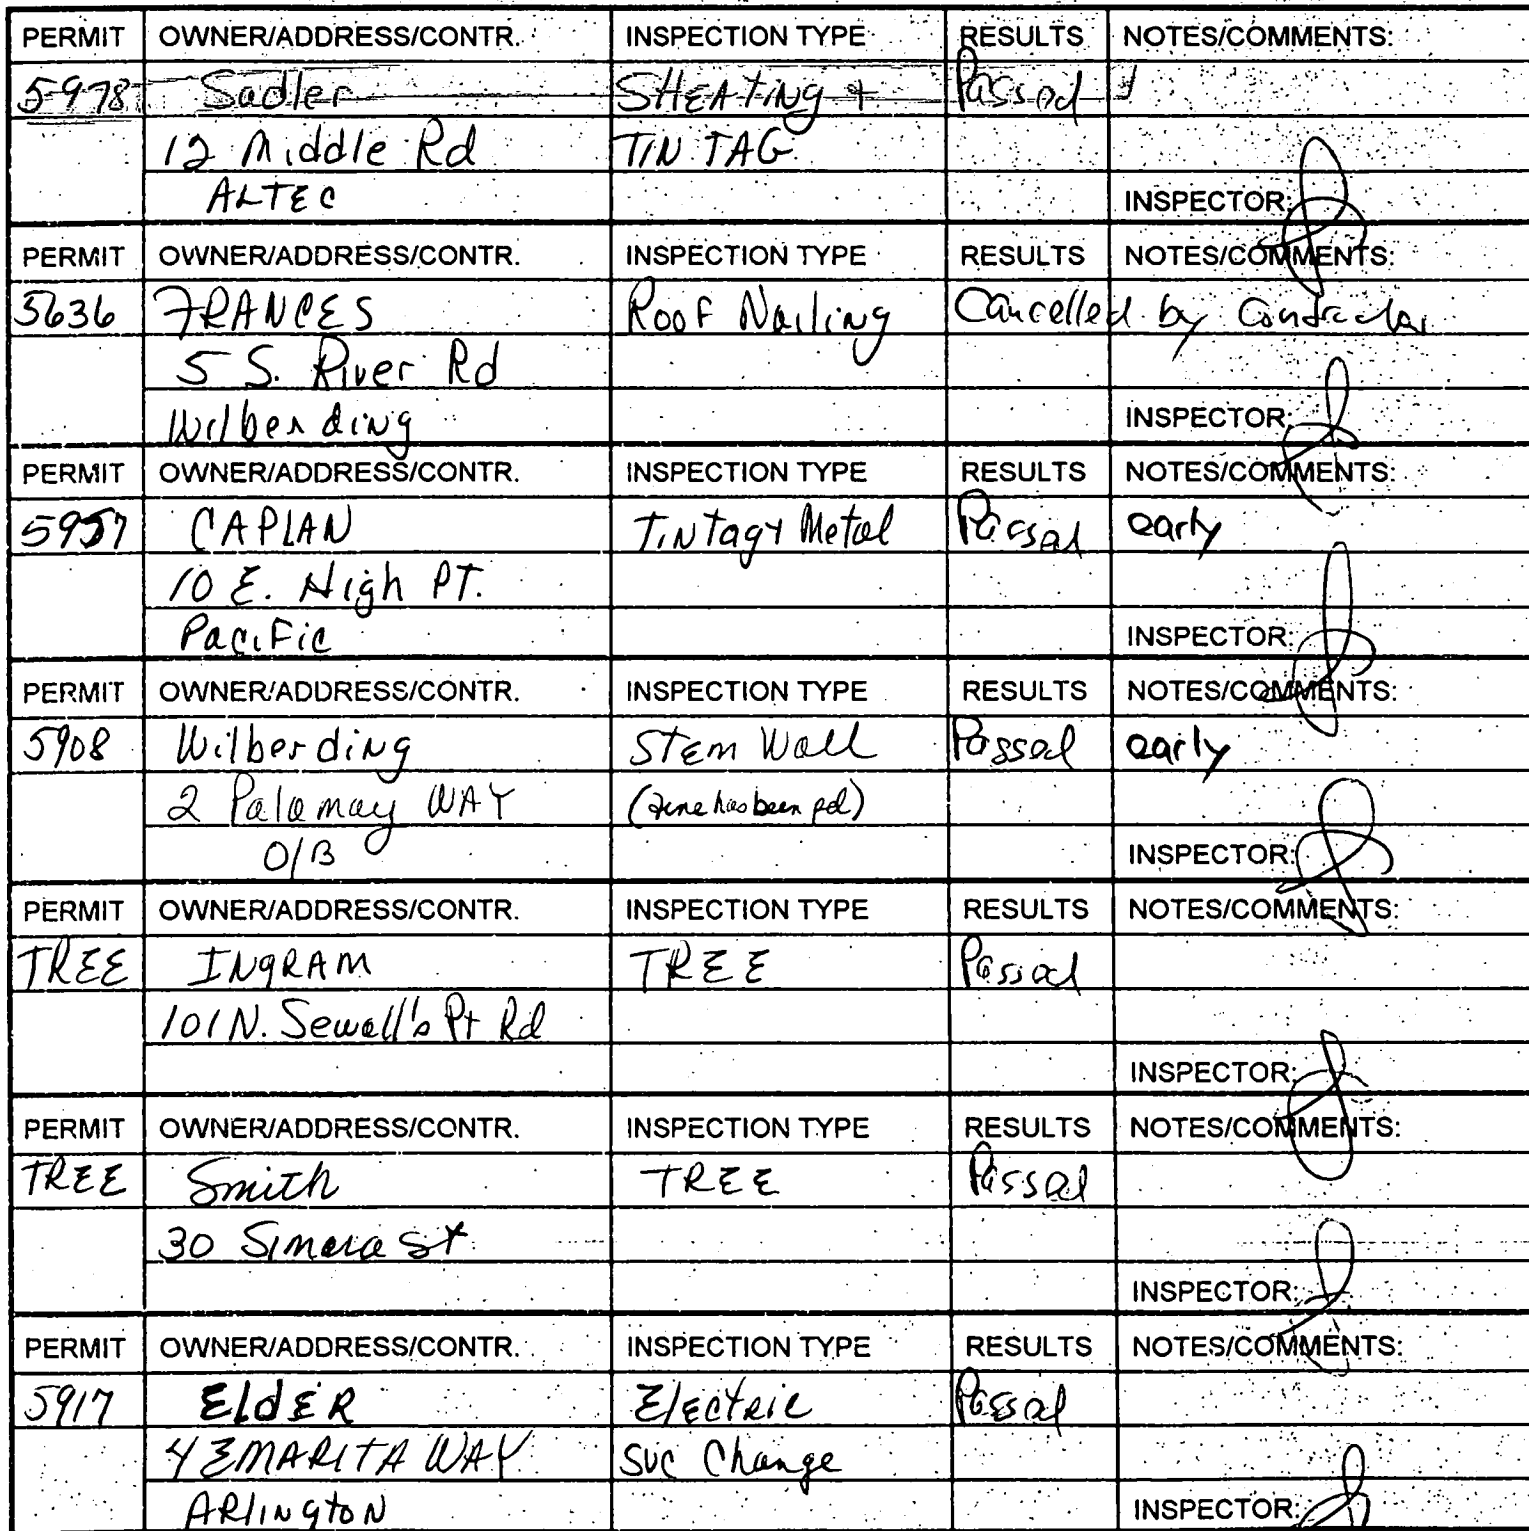 PERMIT OWNER/ADDRESS/CONTR. INSPECTION TYPE RESULTS NOTES/COMMENTS:
5978 Sadler SHEATING + Passed
12 Middle Rd TIN TAG
ALTEC INSPECTOR:
PERMIT OWNER/ADDRESS/CONTR. INSPECTION TYPE RESULTS NOTES/COMMENTS:
5636 FRANCES Roof Nailing Cancelled by Contractor
5 S. River Rd
Wilberding INSPECTOR:
PERMIT OWNER/ADDRESS/CONTR. INSPECTION TYPE RESULTS NOTES/COMMENTS:
5957 CAPLAN Tin Tag + Metal Passed early
10 E. High PT.
Pacific INSPECTOR:
PERMIT OWNER/ADDRESS/CONTR. INSPECTION TYPE RESULTS NOTES/COMMENTS:
5908 Wilberding Stem Wall Passed early
2 Palamay WAY (fine has been pd)
O/B INSPECTOR:
PERMIT OWNER/ADDRESS/CONTR. INSPECTION TYPE RESULTS NOTES/COMMENTS:
TREE INGRAM TREE Passed
101 N. Sewall's Pt Rd
INSPECTOR:
PERMIT OWNER/ADDRESS/CONTR. INSPECTION TYPE RESULTS NOTES/COMMENTS:
TREE Smith TREE Passed
30 Simara St
INSPECTOR:
PERMIT OWNER/ADDRESS/CONTR. INSPECTION TYPE RESULTS NOTES/COMMENTS:
5917 ELdER Electric Passed
4 EMARITA WAY Svc Change
ARlington INSPECTOR: